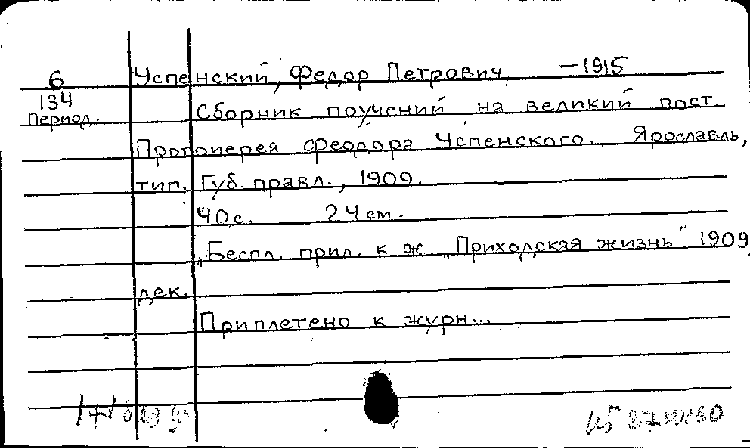 6 Успенский, Федор Петрович —1915
134
Период.
Сборник поучений на великий пост
Протоиерея Феодора Успенского. Ярославль,
тип. Губ. правл., 1909.
40с. 24см.
„Беспл. прил. к ж „Приходская жизнь" 1909
дек.
Приплетено к журн...